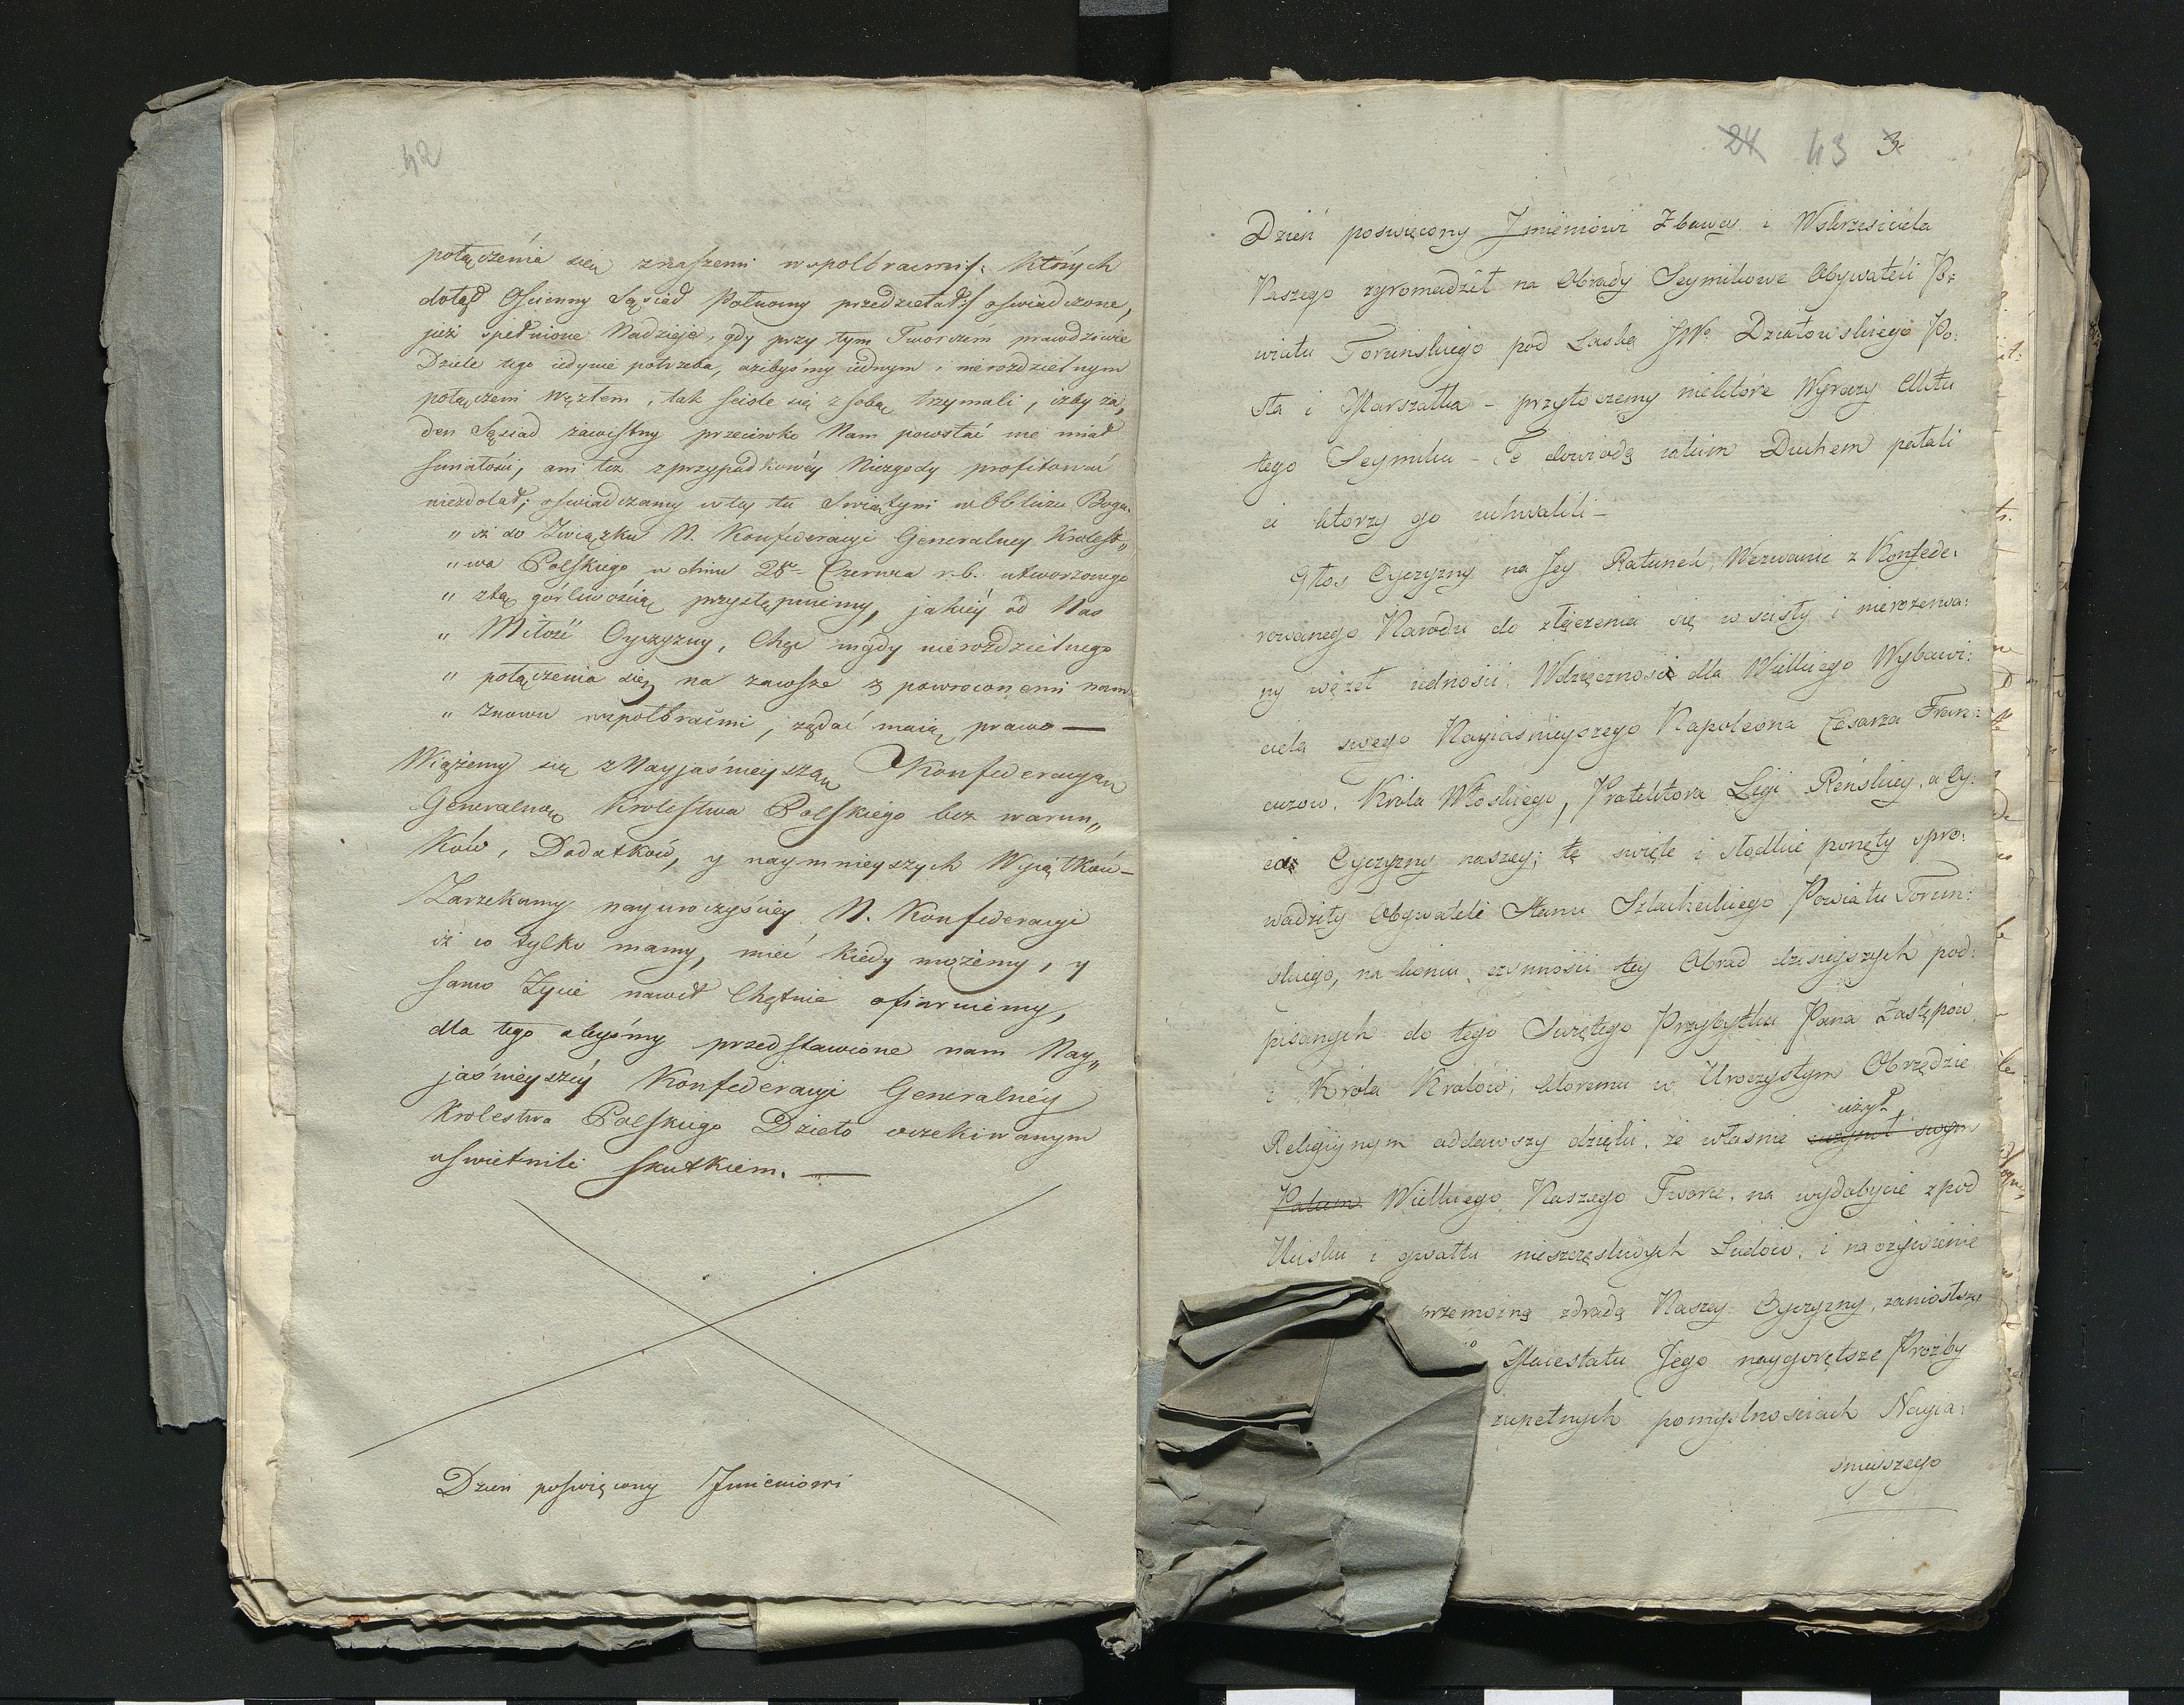 42
połączénia się znaszemi wspolbraćmi; których
dotąd Ościenny Sąsiad Północny przedzielał, oświadczone,
już spełnione Nadzieje, gdy przy tym Tworczém prawdziwie
Dziele tego iedynie potrzeba, ażebyśmy iednym i nierozdzielnym
połączeni Węzłem, tak ściśle się z sobą trzymali, iżby ża„
den Sąsiad zawistny przeciwko Nam powstać nie miał
śmiałości, ani też z przypadkowéy Niezgody profitować
niezdołał; oświadczamy w téy tu Swiątyni w Obliczu Boga.
„ iż do Związku N. Konfederacyi Generalney Krolest„
„ wa Polskiego w dniu 28ᵒ Czerwca r. b. utworzonego
„ ztą górliwością przystępuiemy, jakiéy od Nas
„ Miłość Oyczyzny, Chęć nigdy nierozdzielnego
„ połączenia się na zawsze z powroconemi nam
„ znowu wspołbraćmi, żądać maią prawo —
Wiążemy się z Nayjaśnieyszą Konfederacyą
Generalną Krolestwa Polskiego bez warun„
ków, Dodatków, y naymnieyszych Wyiątków —
Zarzekamy nayuroczyściey N. Konfederacyi
iż co tylko mamy, mieć kiedy możemy, y
samo Życie nawet Chętnie ofiaruiemy,
dla tego abyśmy przedstawione nam Nay„
jaśnieyszéy Konfederacyi Generalnéy
Krolestwa Polskiego Dzieło oczekiwanym
uświetnili skutkiem. —
Dzień poświęcony Jmieniowi
24 43 3
Dzień poswięcony Jmieniowi Zbawcy i Wskrzesiciela
Naszego zgromadził na Obrady Seymikowe Obywateli Po:
wiatu Torunskiego pod Laską JWo Działowskiego Po:
sła i Marszałka - przytoczemy niektóre Wyrazy Aktu
tego Seymiku - Te dowiodą iakim Duchem pałali
ci ktorzy go uchwalili -
Głos Oyczyzny na Jey Ratunek, Wezwanie z Konfede:
rowanego Narodu do złączenia się w scisły i nierozerwa:
ny węzeł iedności, Wdzięczność dla Wielkiego Wybawi:
ciela swego Nayiaśnieyszego Napoleona Cesarza Fran:
cuzow, Krola Włoskiego, Protektora Ligi Reńskiey, a Oy:
ca Oyczyzny naszey; te swięte i słodkie ponęty spro:
wadziły Obywateli Stanu Szlacheckiego Powiatu Torun:
skiego, na koncu czynności tey Obrad dzisieyszych pod:
pisanych do tego Swiętego Przybytku Pana Zastępów
i Króla Krolów, ktoremu w Uroczystym Obrzędzie
użył
Religiynym oddawszy dzięki, że własnie uczynił swym
Palcem Wielkiego Naszego Tworcę, na wydobycie z pod
Ucisku i gwałtu nieszczęsliwych Ludow, i na ożywienie
przemożną zdradą Naszey Oyczyzny, zaniosłszy
Maiestatu Jego naygorętsze Prozby
zupełnych pomyślnościach Nayia:
śnieyszego